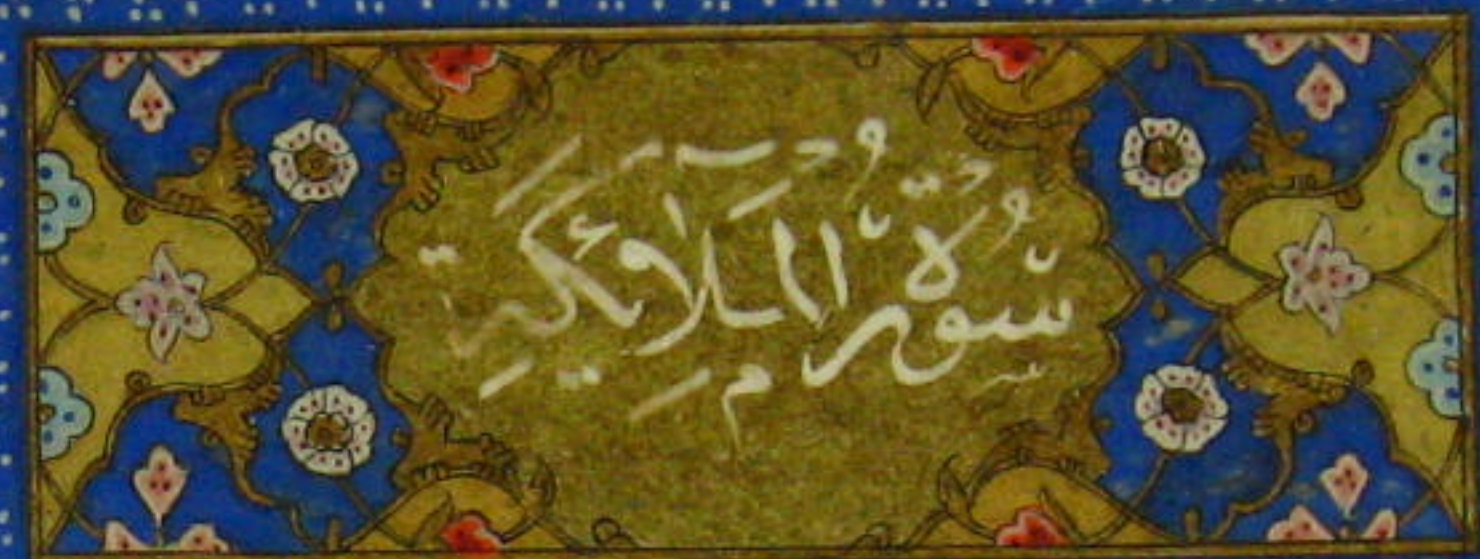 سُورَةُ الْمَلَائِكَةِ